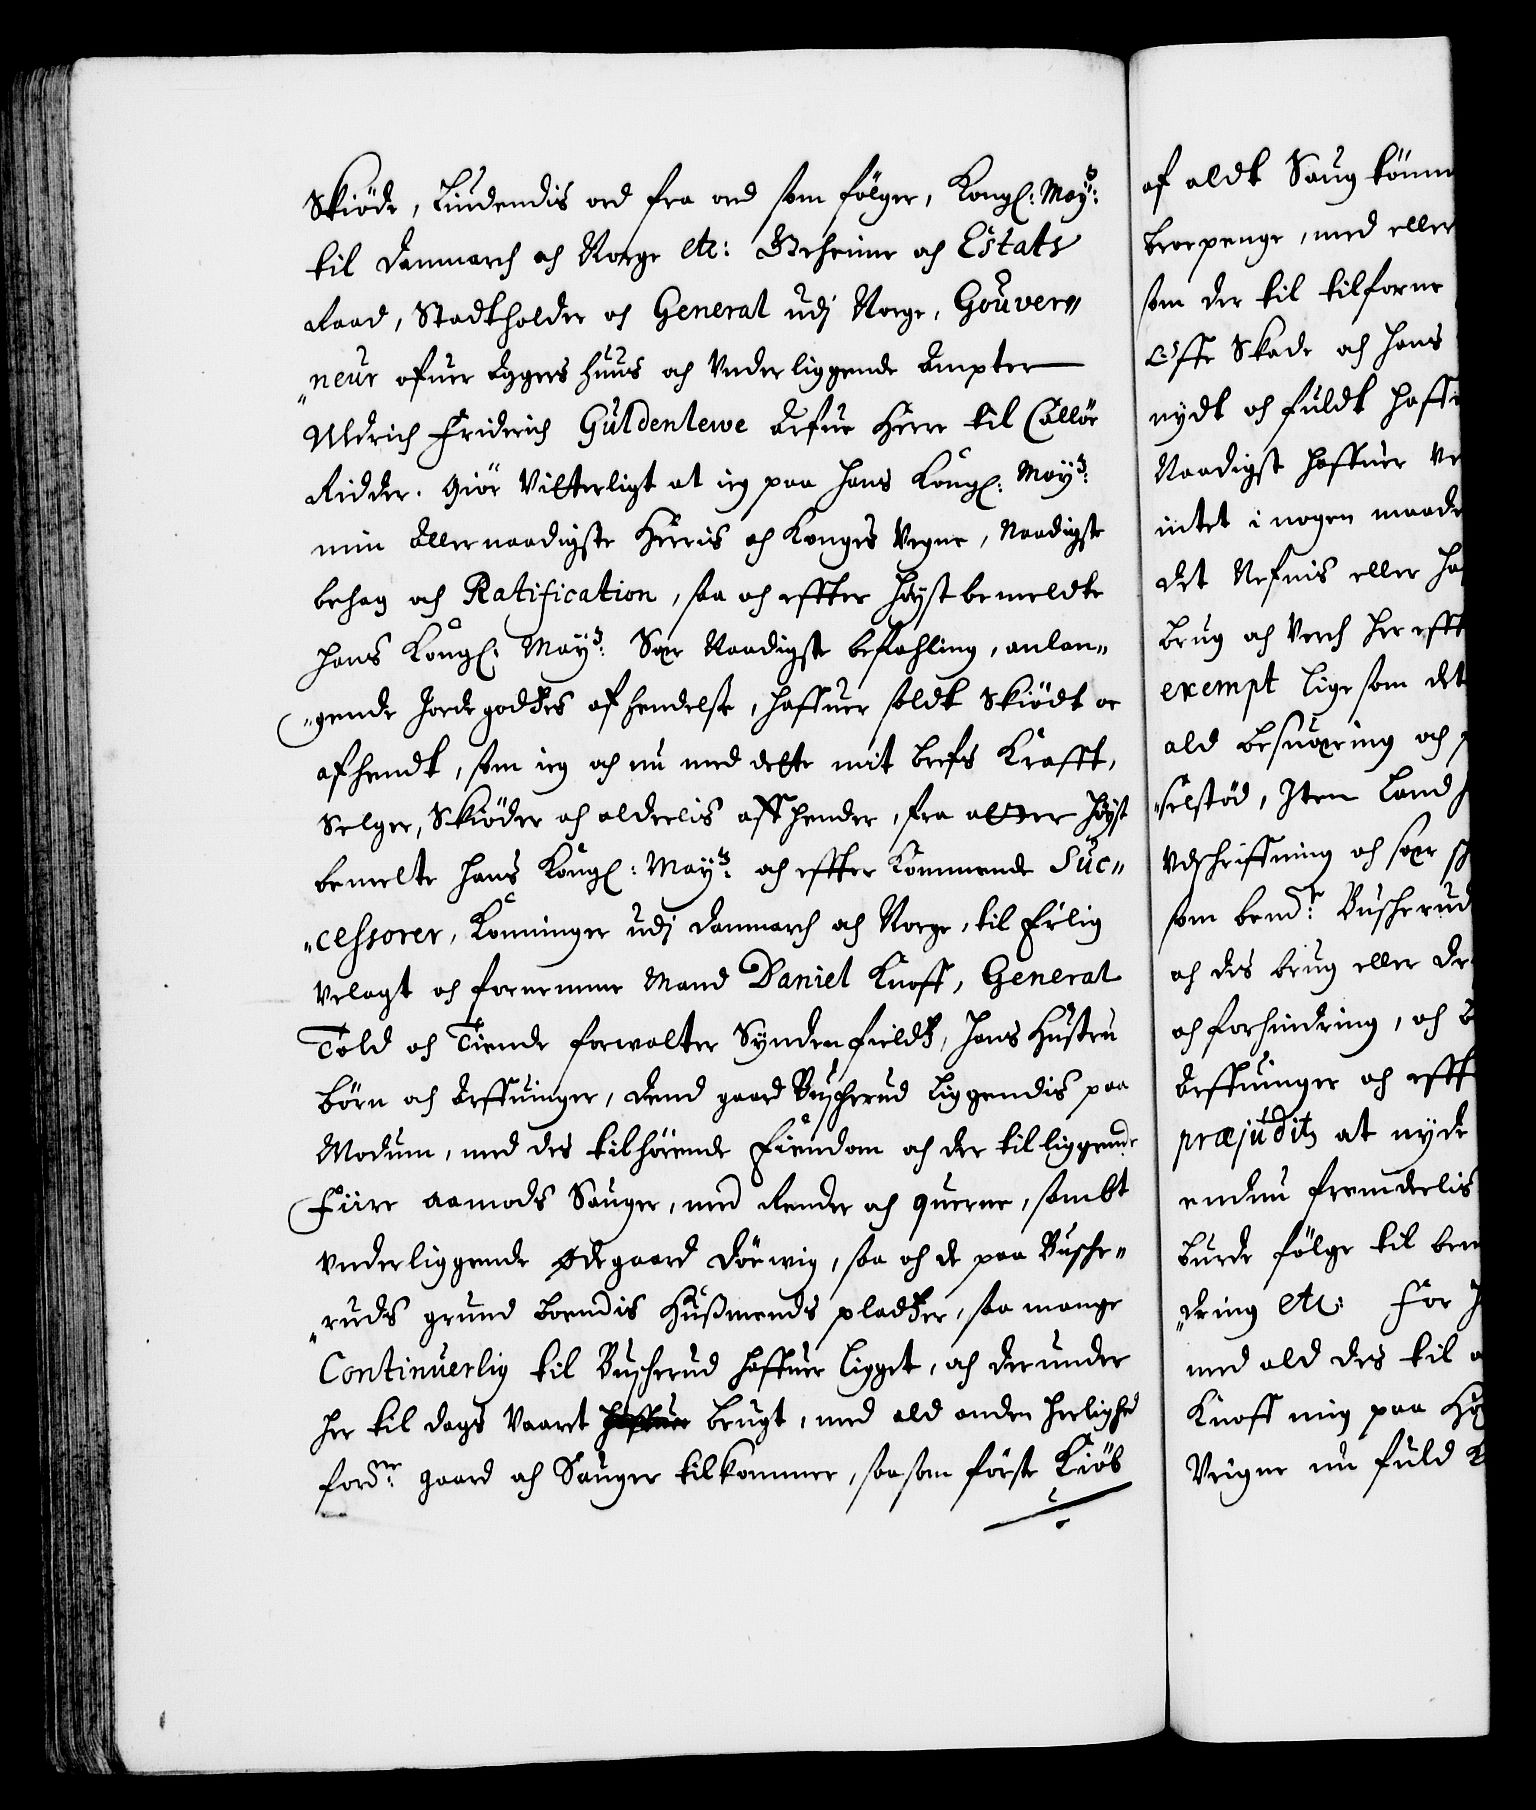 Skiöde, Liudendis ord fra ord som fölger, Kongl: May:ᵗˢ
til Danmarch och Norge etc: Geheime och Estats
Raad, Stadtholder och General udj Norge, Gouver„
„neur ofuer Aggers huus och Underliggende Ampter
Uldrich Friderich Güldenlewe Arfue Herre til Callöe
Ridder. Giör Vitterligt at ieg paa Hans Kongl: May:ᵗˢ
min Allernaadigste Herris och Konges Vegne, Naadigste
behag och Ratification, saa och effter Höystbemeldte
Hans Kongl: May:ᵗˢ Sær Naadigste befahling, anlan„
„gende Jordegodtzes afhendelse, haffuer soldt Skiödt oc
afhendt, som ieg och nu med dette mit brefs Krafft,
Selger, Skiöder och alderlis affhender, fra atter Höyst
bemelte Hans Kongl: May:ᵗˢ och effter Kommende Suc„
„cessorer, Konninger udj Danmarch och Norge, til Erlig
Velagt och fornemme Mand Daniel Knoff, General
Told och Tiende forwalter Syndenfieldtz, Hans Hustru
Börn och Arffuinger, Dend gaard Buscherud Liggendis paa
Modum, med des tilhörende Eiendom och der tilliggende
Fiire aamods Sauger, med Render och querne, sambt
underliggende Ødegaard Dörwig, saa och de paa Busche„
„ruds grund boendis Husmends pladtzer, saa mange
Continuerlig til Buscherud haffuer ligget, och derunder
her til dags Vaaret haffuer brugt, med ald anden Herlighed
fordⁿᵉ gaard och Sauger tilkommer, saasom förste Kiöb
af aldt Saug tömm
broepenge, med eller
som der til tilforne
Össe Skade och Hans
nydt och fuldt haffu
Naadigst haffuer
intet i nogen maade
det Nefnis eller
Brug och Verch her efft
exempt lige som det
ald besuæring och
„selstöd, Item Land
Udschriffning och sær
som bemᵗᵉ Buscherud
och des brug eller
och forhindring, och
Arffuinger och efft
præjuditz at nyde
endnu fremdelis
burde fölge til bem
„dring etc: For
med ald des til
Knoff mig paa
Veigne nu fuld